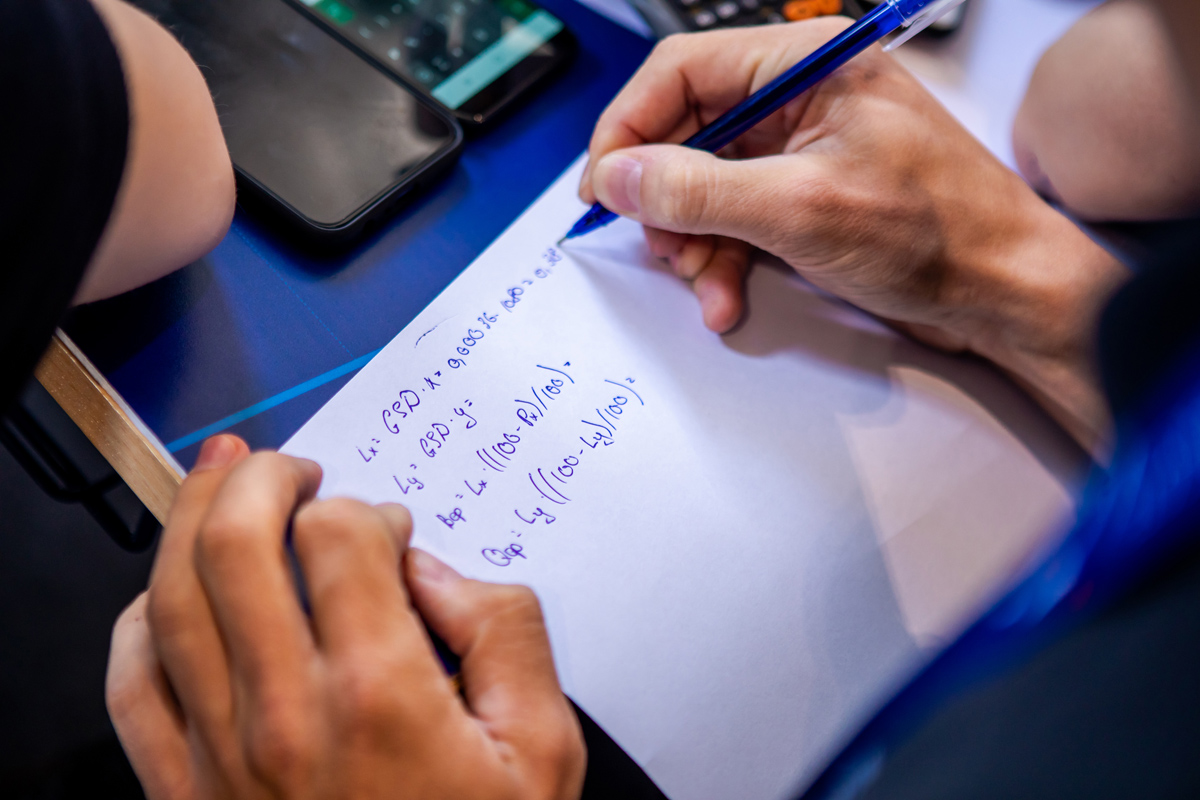 Lx = GSD · x = 0,00036 · 1080 = 0,38
Ly = GSD · y =
Bср = Lx · ((100 - Px)/100) =
Qср = Ly · ((100 - Ly)/100) =